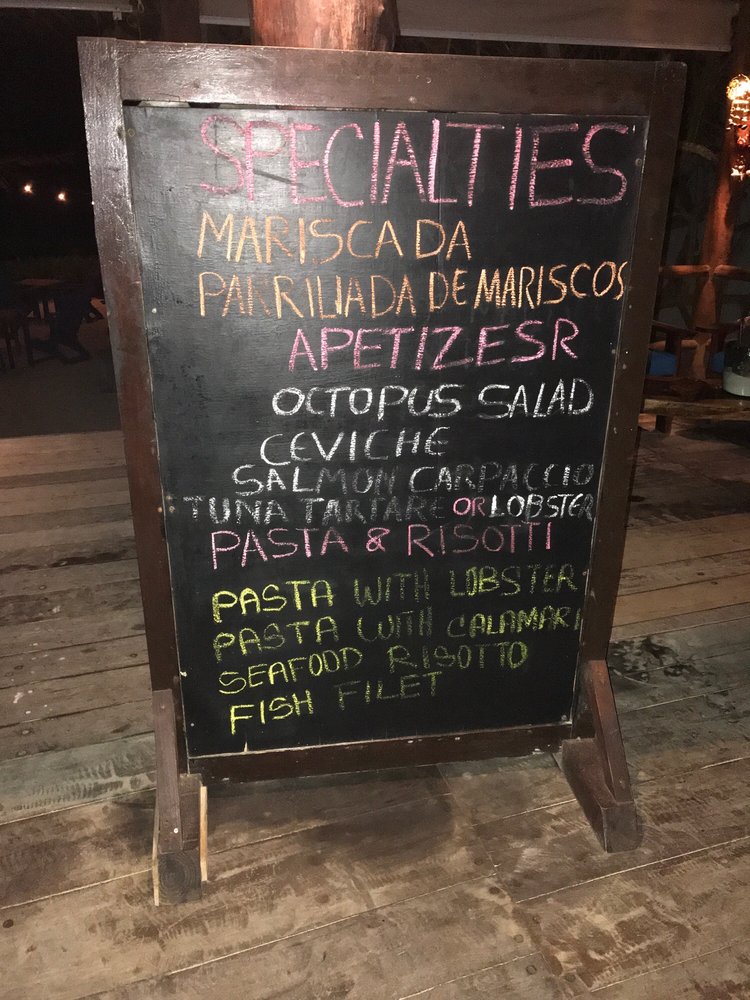 SPECIALTIES
MARISCADA
PARRILIADA DE MARISCOS
APETIZESR
OCTOPUS SALAD
CEVICHE
SALMON CARPACCIO
TUNA TARTARE OR LOBSTER
PASTA & RISOTTI
PASTA WITH LOBSTER
PASTA WITH CALAMARI
SEAFOOD RISOTTO
FISH FILET